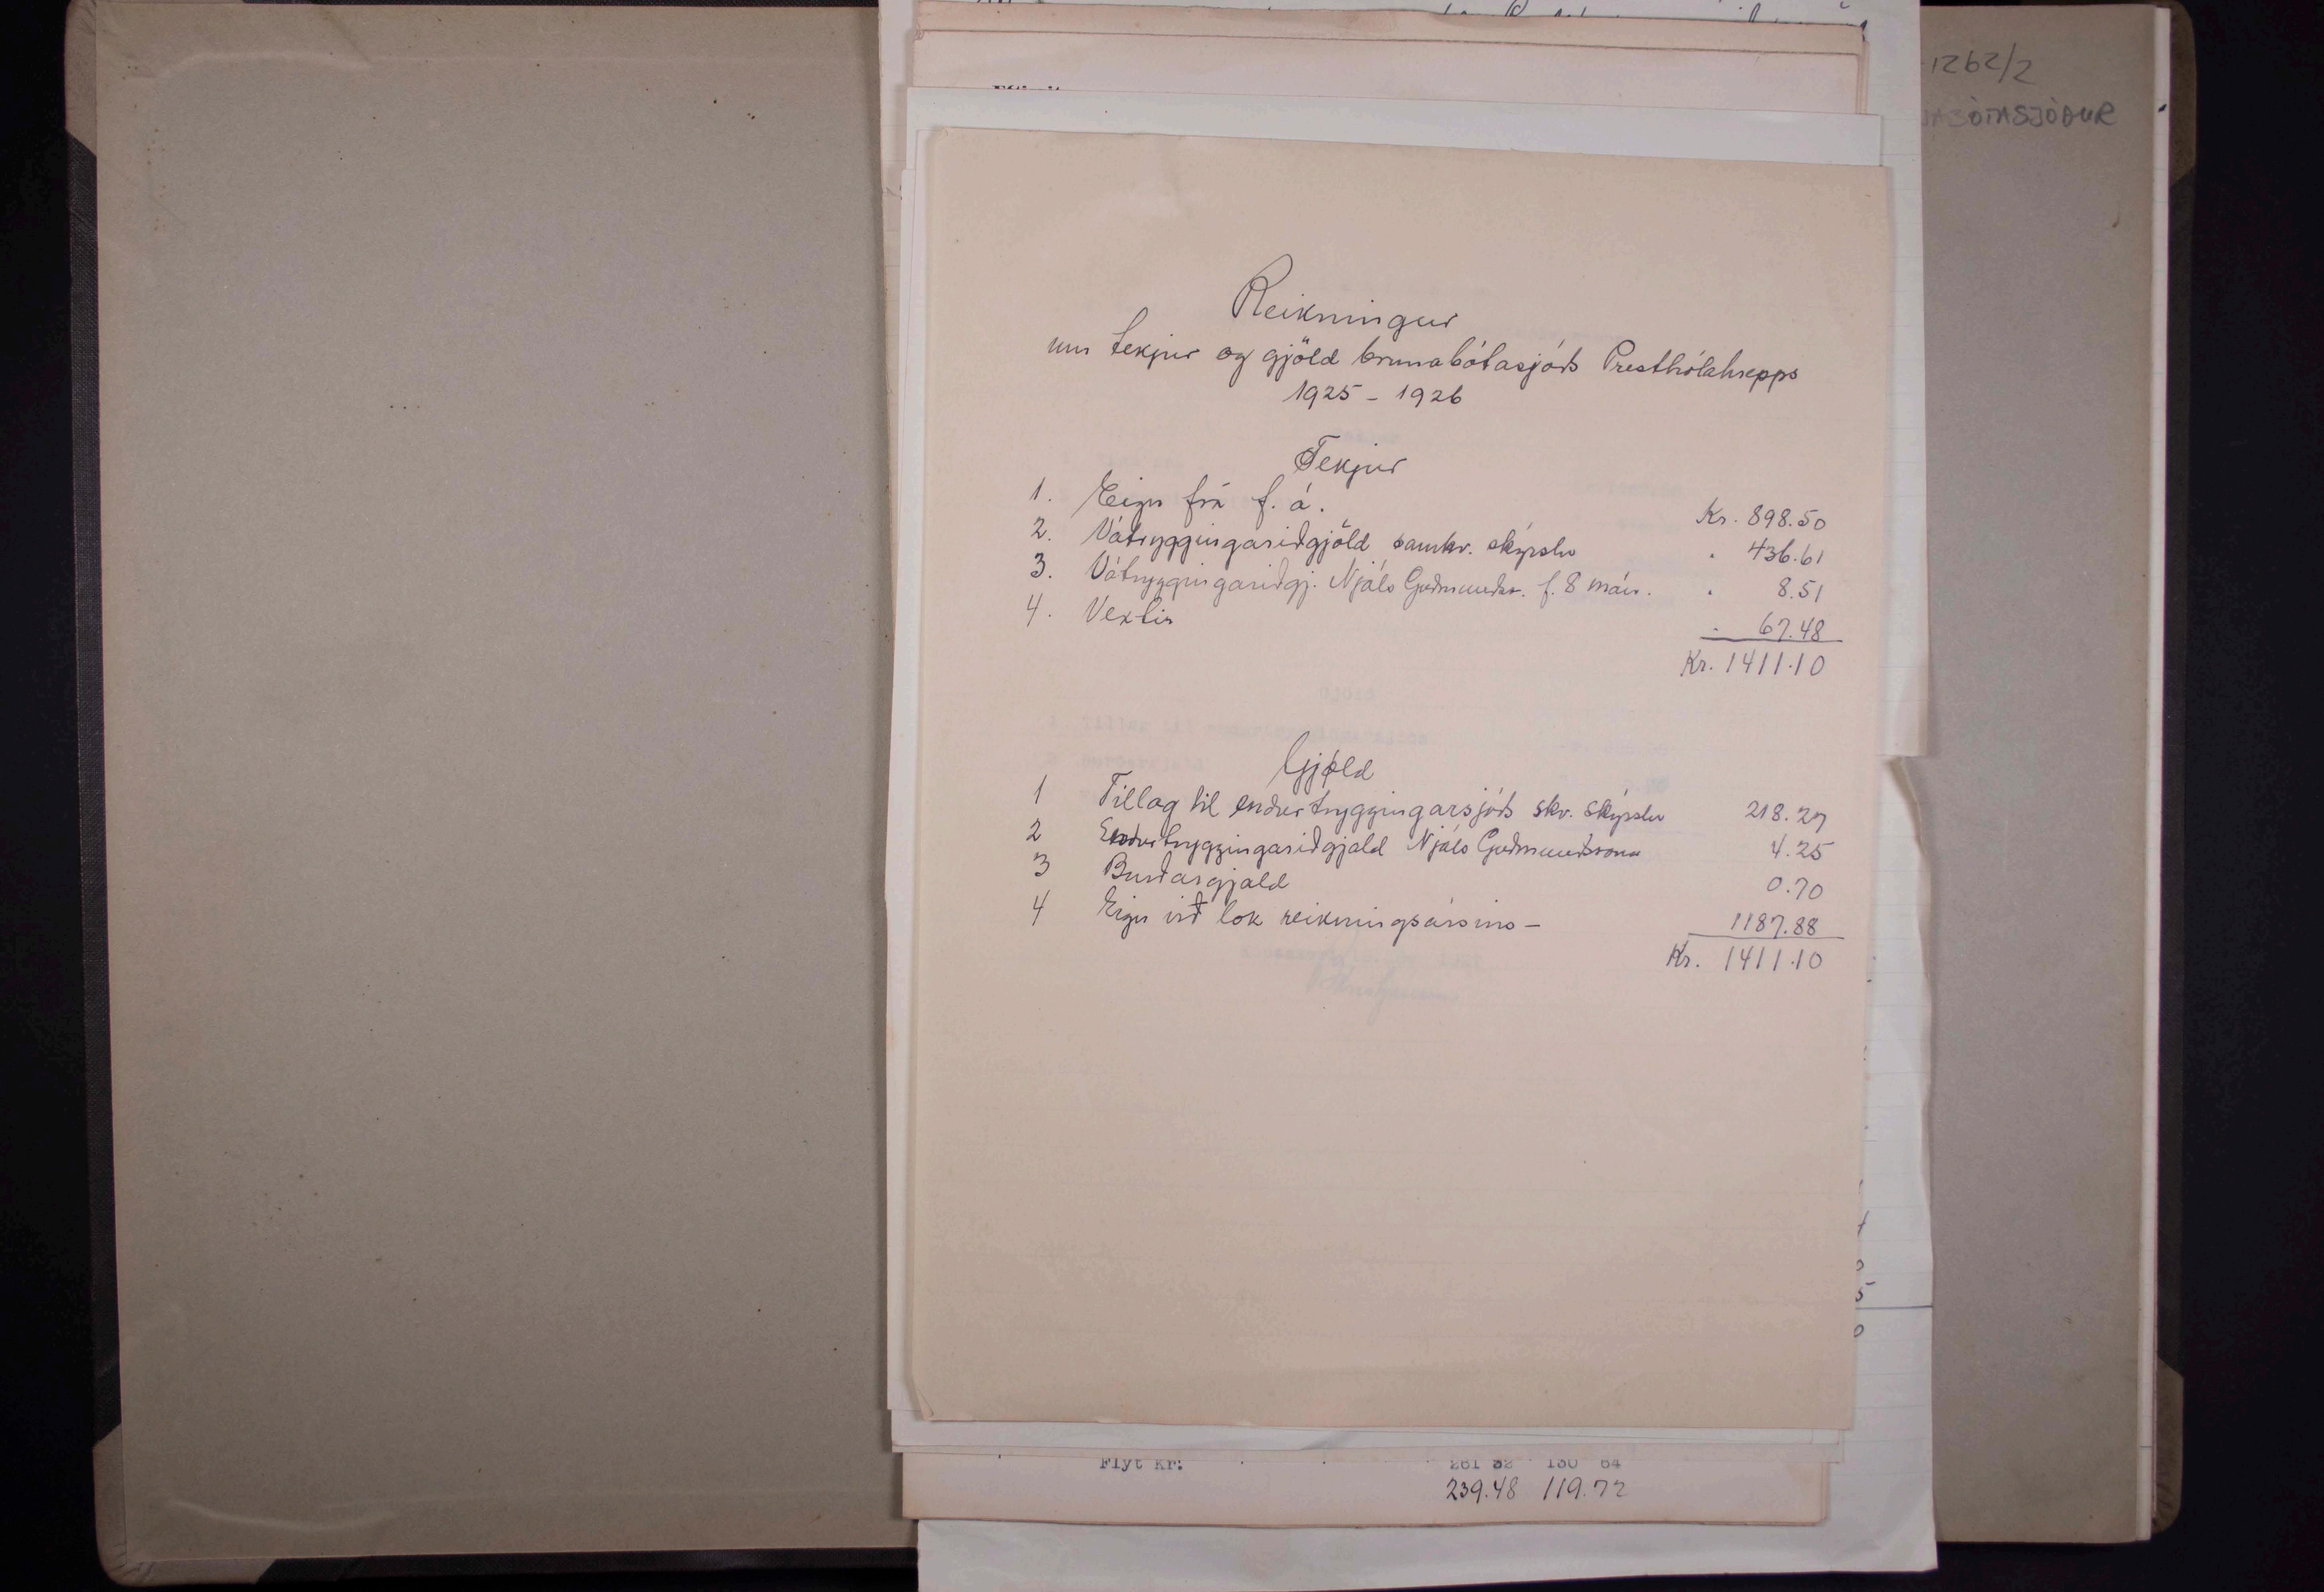 1262/2
ASÓTASJÓÐUR
Reikningur
um tekjur og gjöld brunabótasjóðs Presthólahrepps
1925 - 1926
Tekjur
1. Eign frá f. á. Kr. 898.50
2. Vátryggingariðgjöld samkv. skýrslu " 436.61
3. Vátryggingariðgj. Njáls Guðmundss. f. 8 mán. " 8.51
4. Vextir " 67.48
Kr. 1411.10
Gjöld
1 Tillag til endurtryggingarsjóðs skv. skýrslu 218.27
2 Endurtryggingariðgjald Njáls Guðmundssonar 4.25
3 Burðargjald 0.70
4 Eign við lok reikningsársins - 1187.88
Kr. 1411.10
Flyt kr: 261 32 130 64
239.48 119.72